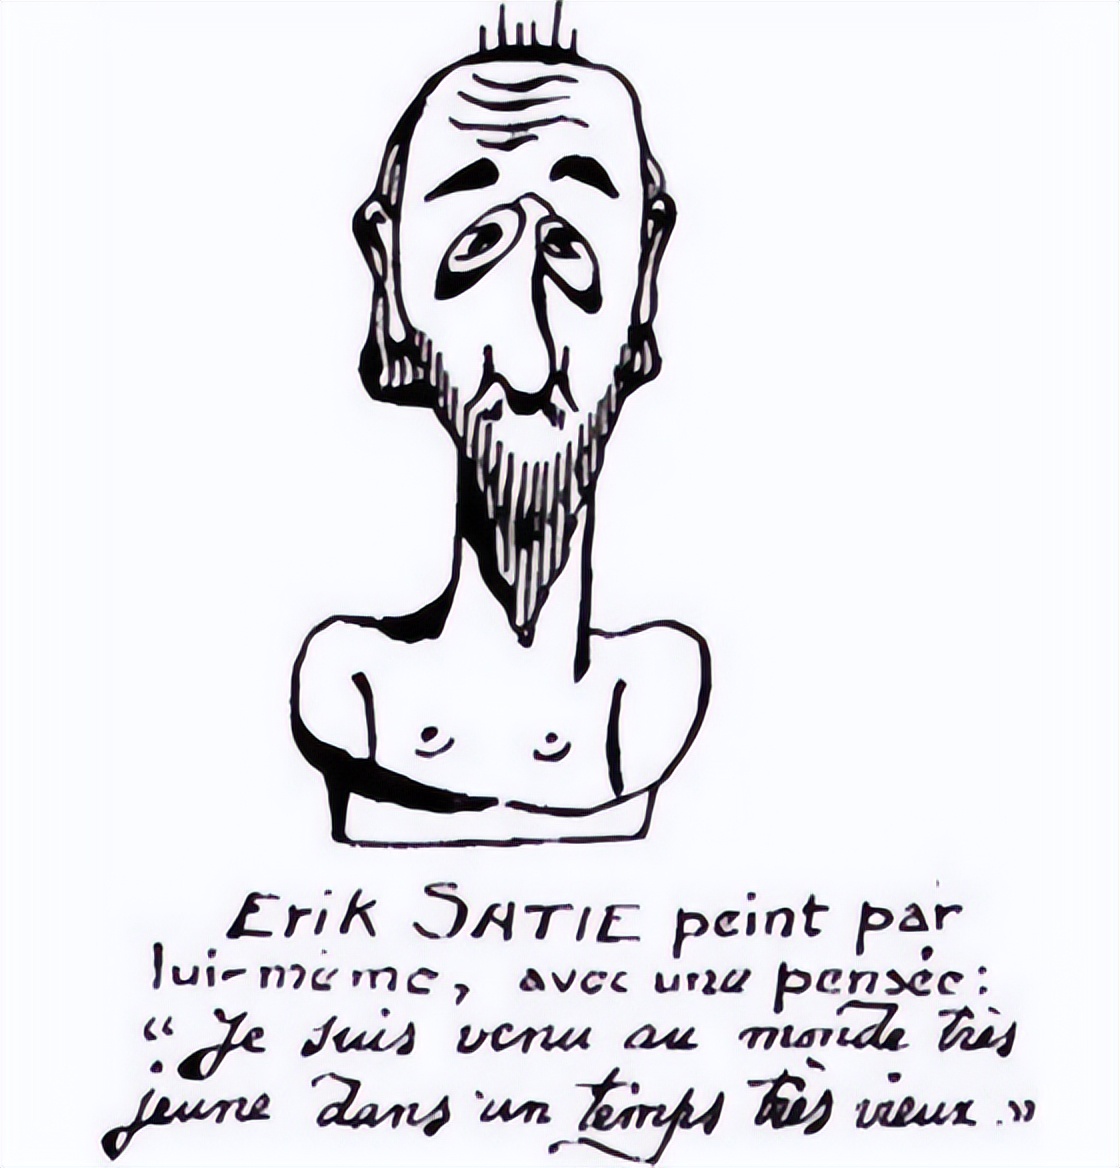 Erik SATIE peint par
lui-même, avec une pensée:
“Je suis venu au monde très
jeune dans un temps très vieux.»